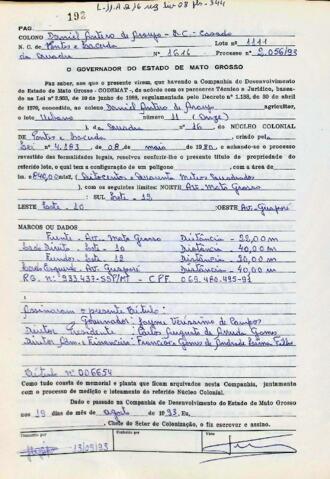 L-11.A 2/6 reg liv 08 fls-344
192
PAG.
COLONO Daniel Antero de Araujo - B.C. - Casado
Lote n.o 1111
N. C. de Pontes e Lacerda N.o 1616 Processo n.o 2.056/93
da Quadra
O GOVERNADOR DO ESTADO DE MATO GROSSO
Faz saber, aos que o presente virem, que havendo a Companhia de Desenvolvimento
do Estado de Mato Grosso - CODEMAT -, de acordo com os pareceres Técnico e Jurídico, basea-
das na Lei nº 2.903, de 10 de janeiro de 1969, regulamentada pelo Decreto n.o 1.138, de 30 de abril
de 1970, concedido, ao colono Daniel Antero de Araujo agricultor,
o lote Urbano número 11 (Onze)
da Quadra nº 16 do NÚCLEO COLONIAL
de Pontes e Lacerda, criado pela
Lei nº 4.193, de 08, de maio de 1980, e achando-se o processo
revestido das formalidades legais, resolveu conferir-lhe o presente título de propriedade
do referido lote, o qual tem a configuração de um polígono com a área de
840,00 m² (Oitocentos e Quarenta Metros Quadrados
), com os seguintes limites: NORTE Av. Mato Grosso
SUL Lote - 12
LESTE Lote - 10 OESTE Av. Guaporé
MARCOS OU DADOS
Frente - Av. Mato Grosso Distância - 22,00 m
Lado Direito - Lote - 10 Distância - 40,00 m
Fundos - Lote - 12 Distância - 20,00 m
Lado Esquerdo - Av. Guaporé Distância - 40,00 m
RG. nº 933.437-SSP/MT - CPF. 069.480.495-91
Assinaram o presente título:
Governador: Jayme Veríssimo de Campos
Diretor Presidente: Carlos Augusto de Arruda Gomes
Diretor Adm. e Financeiro: Francisco Gomes de Andrade Lima Filho
Título nº 006654
Como tudo consta do memorial e planta que ficam arquivados nesta Companhia, juntamente
com o processo de medição e loteamento do referido Núcleo Colonial.
Dado e passado na Companhia de Desenvolvimento do Estado de Mato Grosso
aos 19 dias do mês de agosto de 1993. Eu,
Chefe do Setor de Colonização, o fiz escrever e assino.
Transcrito por
Conferido por
Visto
13/09/93